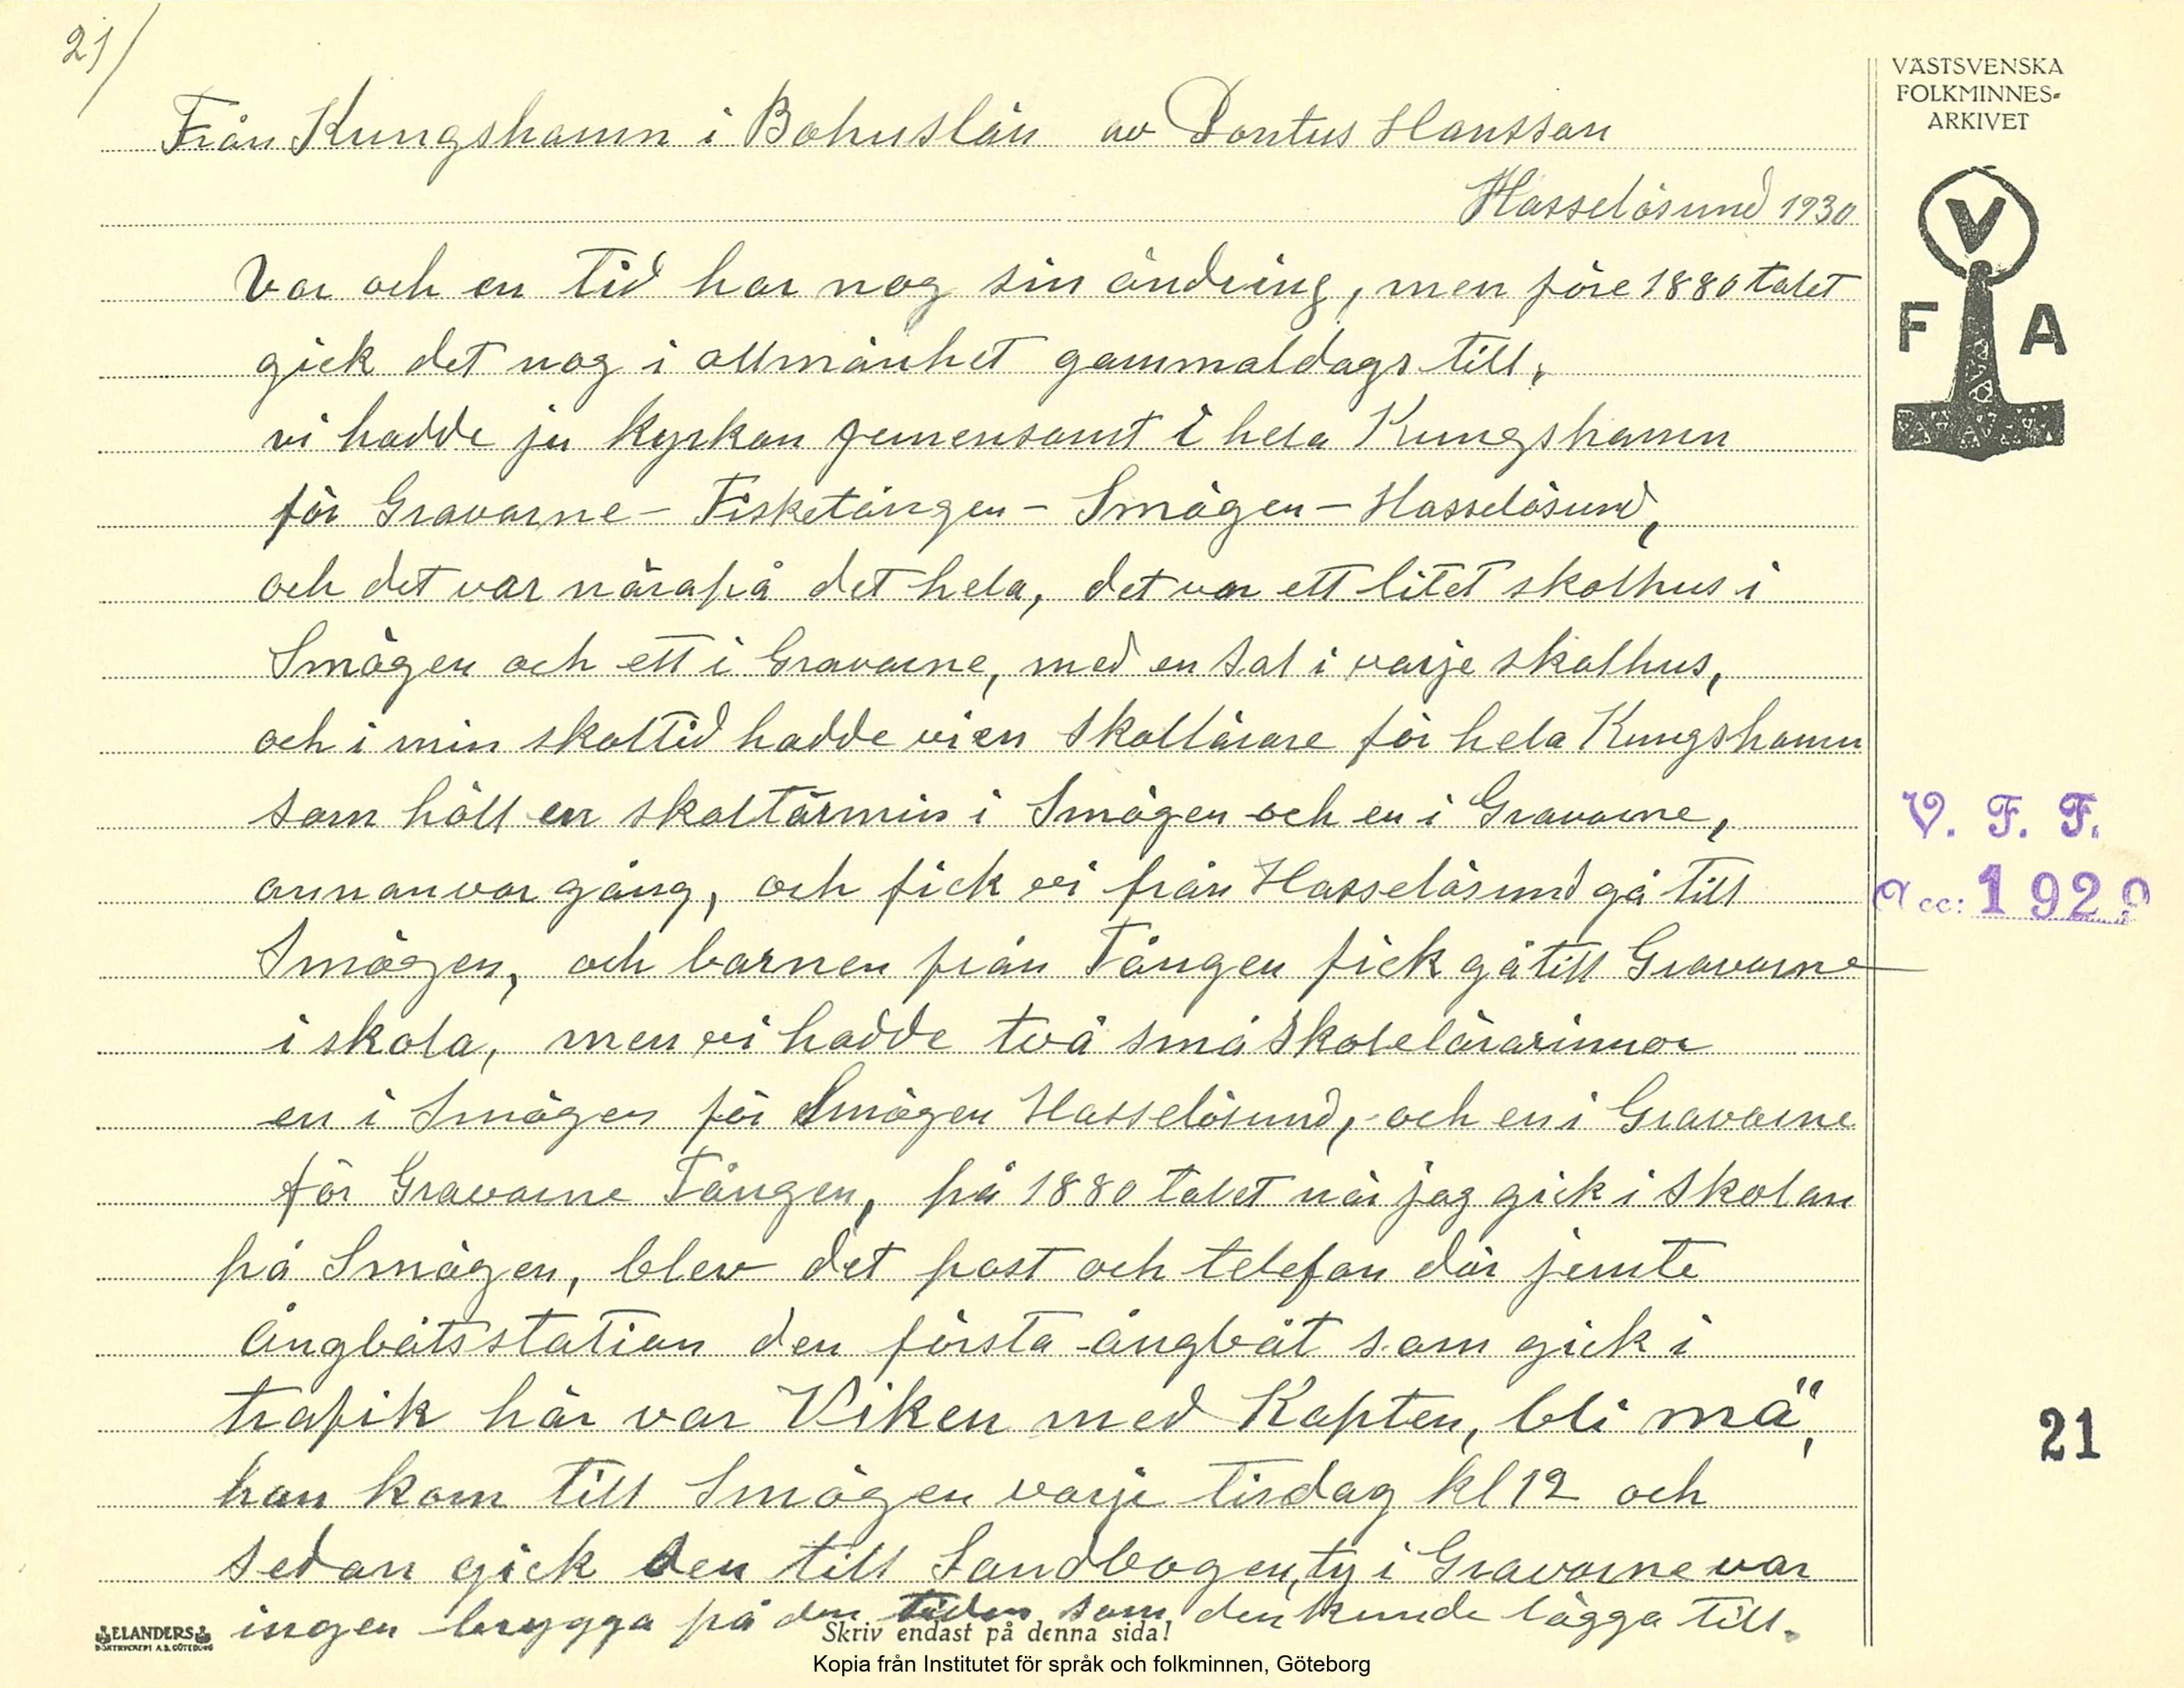 21/
Från Kungshamn i Bohuslän av Pontus Hansson
Hasselösund 1930
Var och en tid har nog sin ändring, men före 1880 talet
gick det nog i allmänhet gammaldags till,
vi hadde ju kyrkan gemensamt i hela Kungshamn
för Gravarne - Fisketången - Smögen - Hasselösund,
och det var närapå det hela, det var ett litet skolhus i
Smögen och ett i Gravarne, med en sal i varje skolhus,
och i min skoltid hadde vi en skollärare för hela Kungshamn
som höll en skoltärmin i Smögen och en i Gravarne,
annanvar gång, och fick vi från Hasselösund gå till
Smögen, och barnen från Tången fick gå till Gravarne
i skola, men vi hadde två små skolelärarinnor
en i Smögen för Smögen Hasselösund, och en i Gravarne
för Gravarne Tången, på 1880 talet när jag gick i skolan
på Smögen, blev det post och telefon där jemte
Ångbåtsstation den första ångbåt som gick i
trafik här var Viken med Kapten, bli mä",
han kom till Smögen varje tisdag kl 12 och
sedan gick den till Sandbogen, ty i Gravarne var
ingen brygga på den tiden som den kunde lägga till.
VÄSTSVENSKA
FOLKMINNES-
ARKIVET
V
F A
V. F. F.
Acc: 1929
21
ELANDERS
BOKTRYCKERI A.B. GÖTEBORG
Skriv endast på denna sida!
Kopia från Institutet för språk och folkminnen, Göteborg